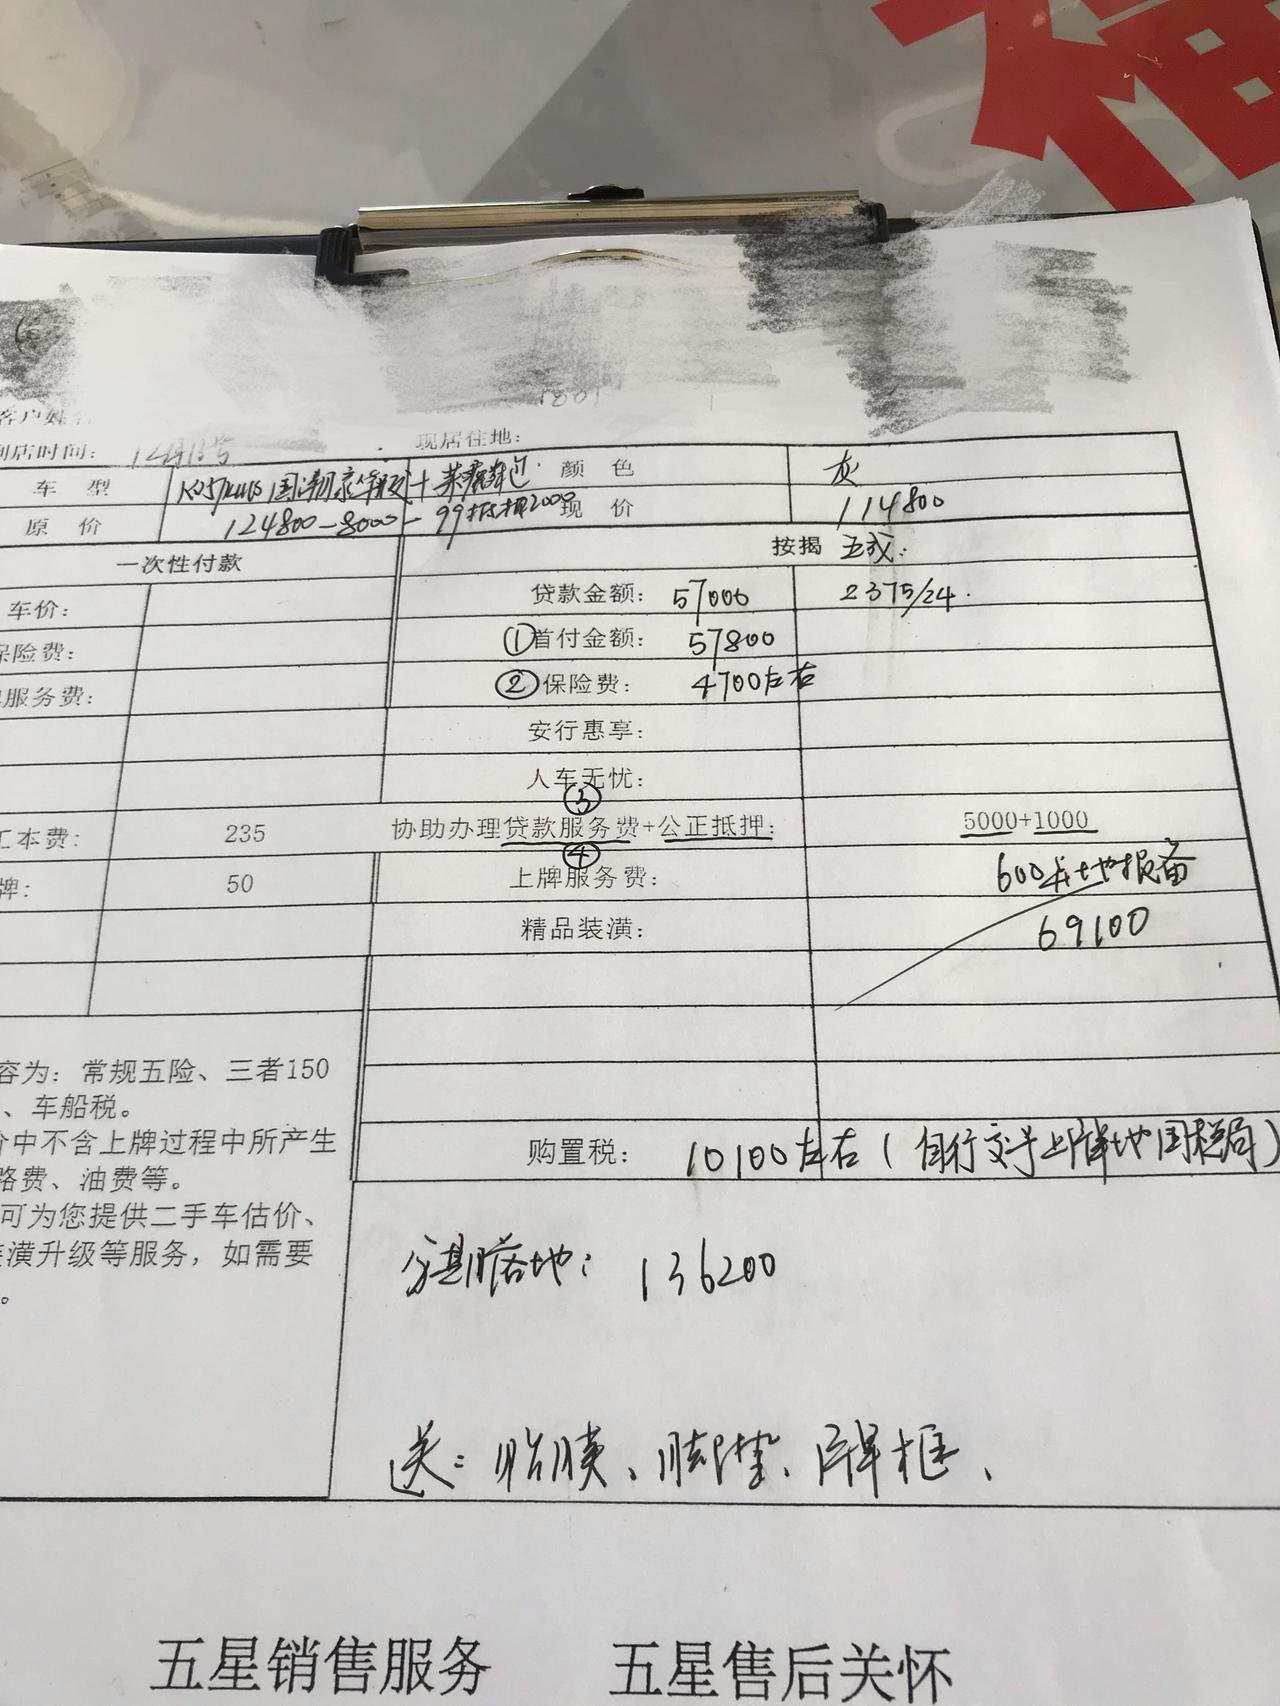 福
客户姓名
到店时间： 12月13号 现居住地：
车 型 国潮豪华版+ 颜 色 灰
原 价 124800-8000- 99抵扣2000 现 价 114800
一次性付款 按揭 五成.
车价： 贷款金额： 57000 2375/24.
保险费： ①首付金额： 57800
服务费： ②保险费： 4700左右
安行惠享：
人车无忧：
③
工本费： 235 协助办理贷款服务费+公正抵押： 5000+1000
④
牌： 50 上牌服务费： 600
精品装潢： 69100
容为：常规五险、三者150
、车船税。
价中不含上牌过程中所产生
路费、油费等。
可为您提供二手车估价、
装潢升级等服务，如需要
。
购置税： 10100左右（自行交于上牌地国税局）
分期落地： 136200
送：贴膜、脚垫、牌框、
五星销售服务 五星售后关怀